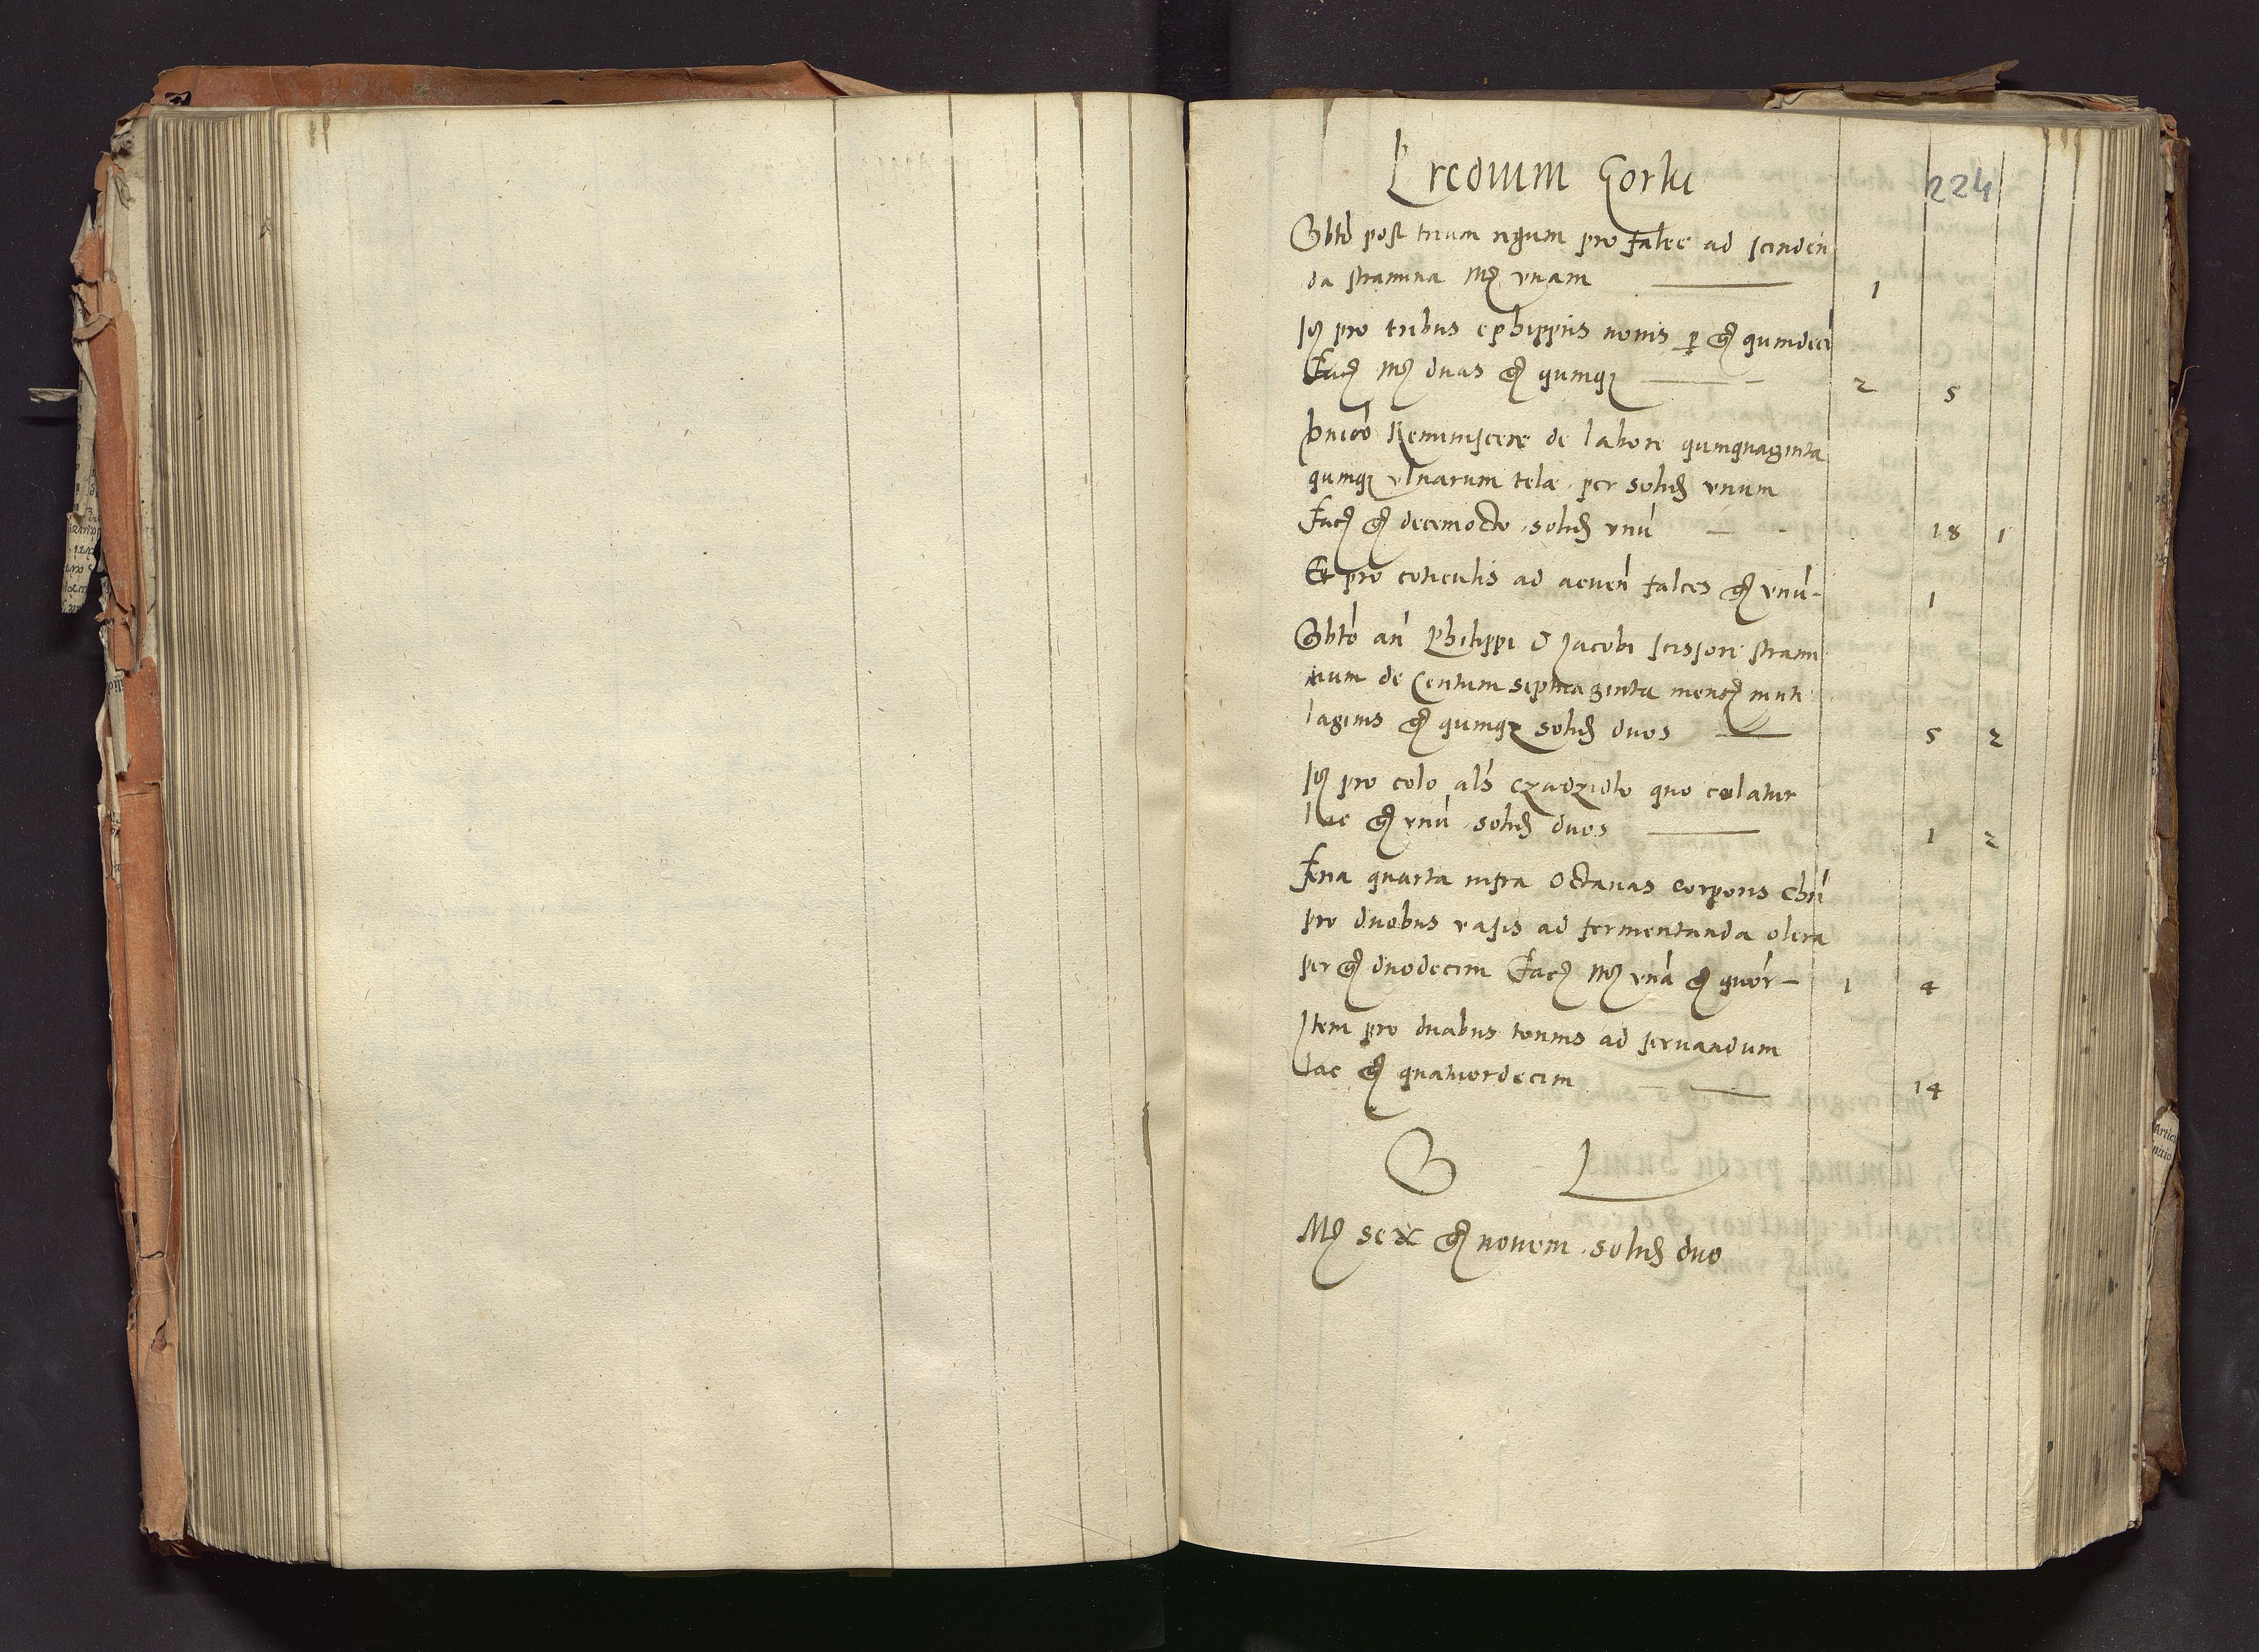 Predium Gorki
224
Sbtō post trium regum pro falce ad scinden
da stramina Mẹ vnam 1
Itẹ pro tribus ephippiis nouis p gṙ quindeci
Facṫ Mẹ duas gṙ quinqȝ 2 5
Dnico Reminiscere de labore quinquaginta
quinqȝ vlnarum telæ per solid vnum
facṫ gṙ decemocto solid vnū 18 1
Et pro coticulis ad acuen falces gṙ vnū 1
Sbtō an Philippi & Jacobi scissori strami
num de Centum septuaginta
laginis gṙ quinqȝ solid duos 5 2
Itẹ pro colo als czadzidlo quo colatur
lac gṙ vnū solid duos 1 2
feria quarta infra Octauas corporis Chri
pro duobus vasis ad fermentanda olera
per gṙ duodecim Facṫ Mẹ vnā gṙ quor 1 4
Item pro duabus tonnis ad seruandum
lac gṙ quatuordecim 14
S L
Mẹ sex gṙ nouem solid duo